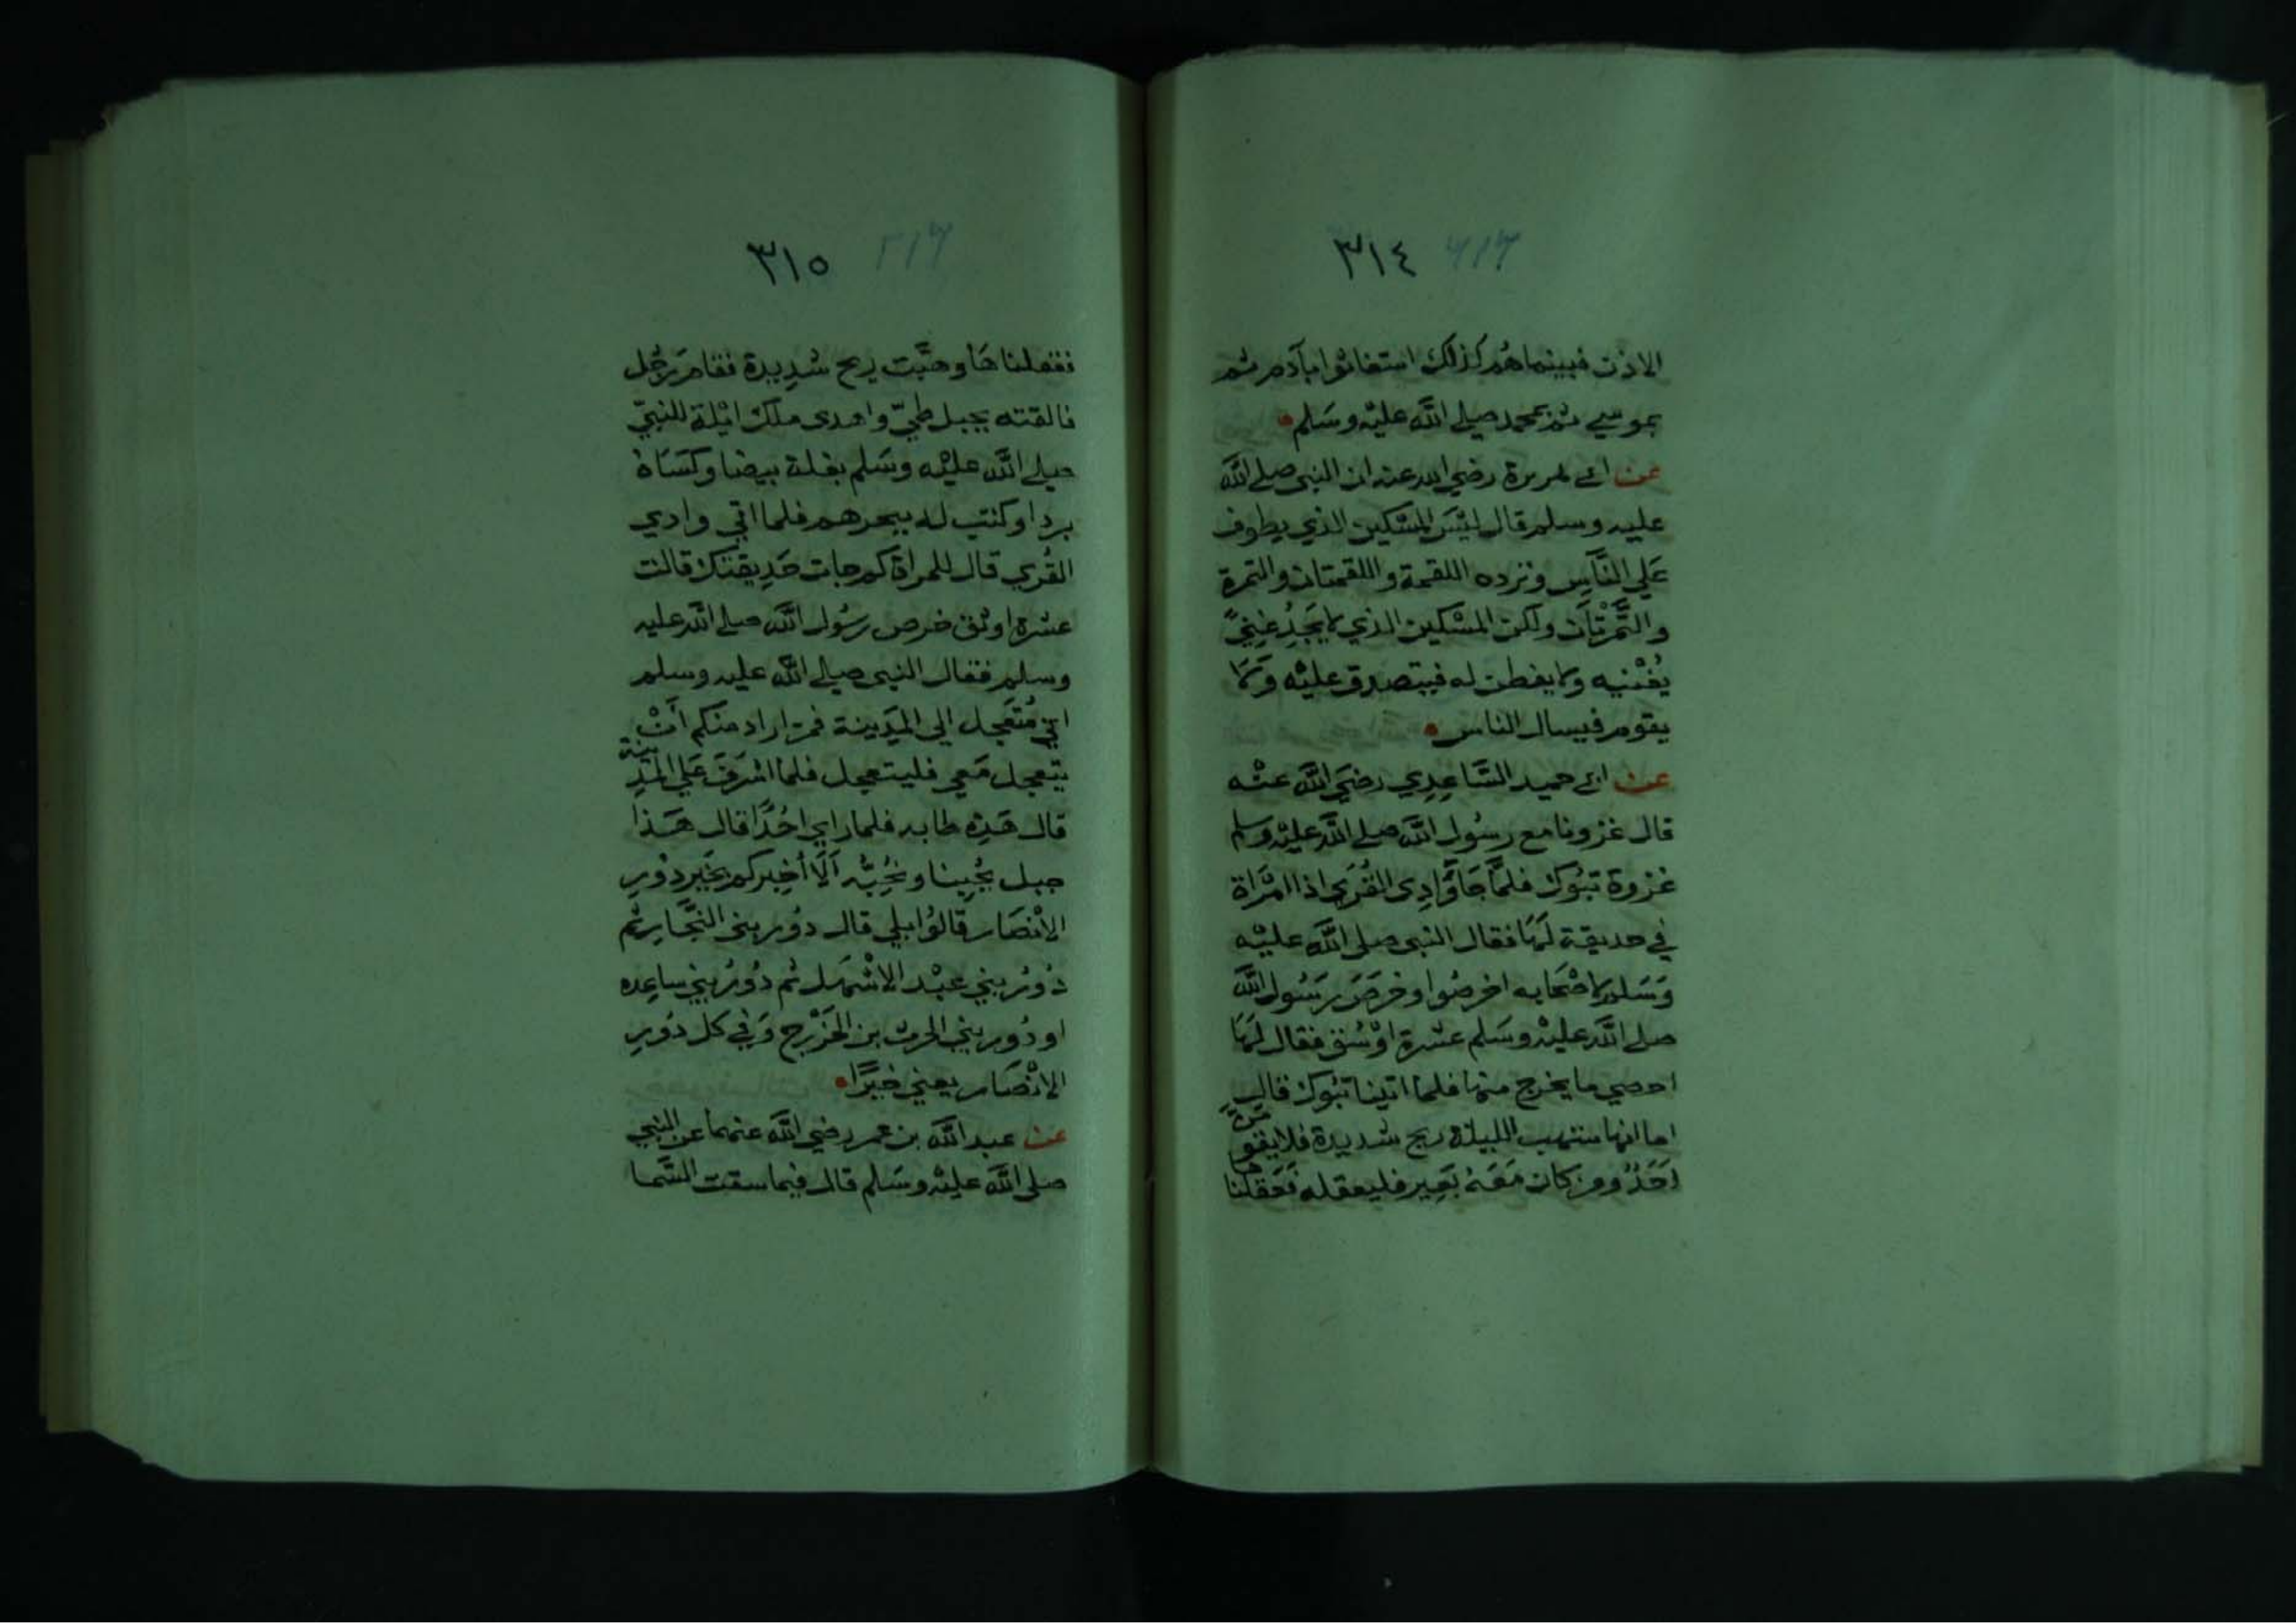 ٣١٤
الاذن فبينما هُم كذلك استغاثوا بآدم ثم
بموسي ثم بمحمد صلي اللّه عليْه وسَلم
عن ابي هريرة رضي الله عنه ان النبي صلي اللّه
عليه وسلم قال ليْسَ المسْكين الذي يطوف
عَلي النَّاسِ وترده اللقمة واللقمتان والتمرة
والتَّمْرتَان ولكن المسْكين الذي لا يَجِدُ غِنيً
يُغْنيه ولا يفطن له فيتصدق عليْه وَلا
يقوم فيسال الناس
عن ابي حميد السَّاعِدِي رضيَ اللَّه عنْه
قال غزونا مع رسُول اللَّه صلي اللَّه عليْه وسلم
غزوة تبُوك فلمَّا جَا وَادِي القُرَي اذا امْرَاة
في حديقة لَهَا فقال النبي صلي اللَّه عليْه
وَسَلم لاصْحَابه اخرصُوا وخرَصَ رَسُول اللَّه
صلي اللَّه عليْه وسَلم عشرة اوْسُق فقال لَهَا
احصي ما يخرج منها فلما اتينا تبُوك قال
اما انها ستهب الليلة ريح شديدة فلا يقومَنَّ
اَحَدٌ ومن كان مَعَهُ بَعِير فليعقله فَعَقلْنا
٣١٥
ففعلناهَا وهبَّت ريح شدِيدة فقامَ رَجُل
فالقته بجبل طيّ واهدى ملك ايْلة للنبيّ
صلي اللَّه عليْه وسَلم بغلة بيضا وكسَاهُ
بردا وكتب له ببحرهم فلما اتي وادي
القُري قال للمراة كم جات حَدِيقتك قالت
عشرة اوسُق خرص رسُول اللَّه صلي اللَّه عليه
وسلم فقال النبي صلي اللَّه عليه وسلم
اني مُتَعَجل الي المَدِينة فمن اراد منكم أنْ
يتعجل مَعي فليتعجل فلما اشرَفَ عَلي المدِينة
قال هَذِه طابه فلما راي احُدًا قال هَذا
جبل يُحبنا ونُحِبُّه اَلَا أخبركم بخَير دُورِ
الانْصَار قالُوا بلي قال دُور بني النجَّار ثم
دُورُ بني عبْد الاشْهَل ثم دُورُ بني ساعِده
او دُور بني الحرث بن الخَزْرج وَفي كل دُورِ
الانْصَار يعني خَيْرًا
عن عبد اللَّه بن عمر رضي اللَّه عنهما عن النبي
صلي اللَّه عليْه وسَلم قال فيما سقت السَّما